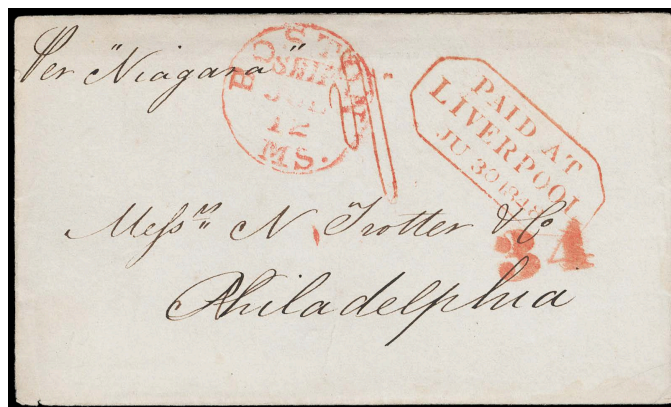 Per "Niagara"
BOSTON
SHIP
JUL
12
MS.
PAID AT
LIVERPOOL
JU 30 1848
34
Messrs N Trotter & Co
Philadelphia